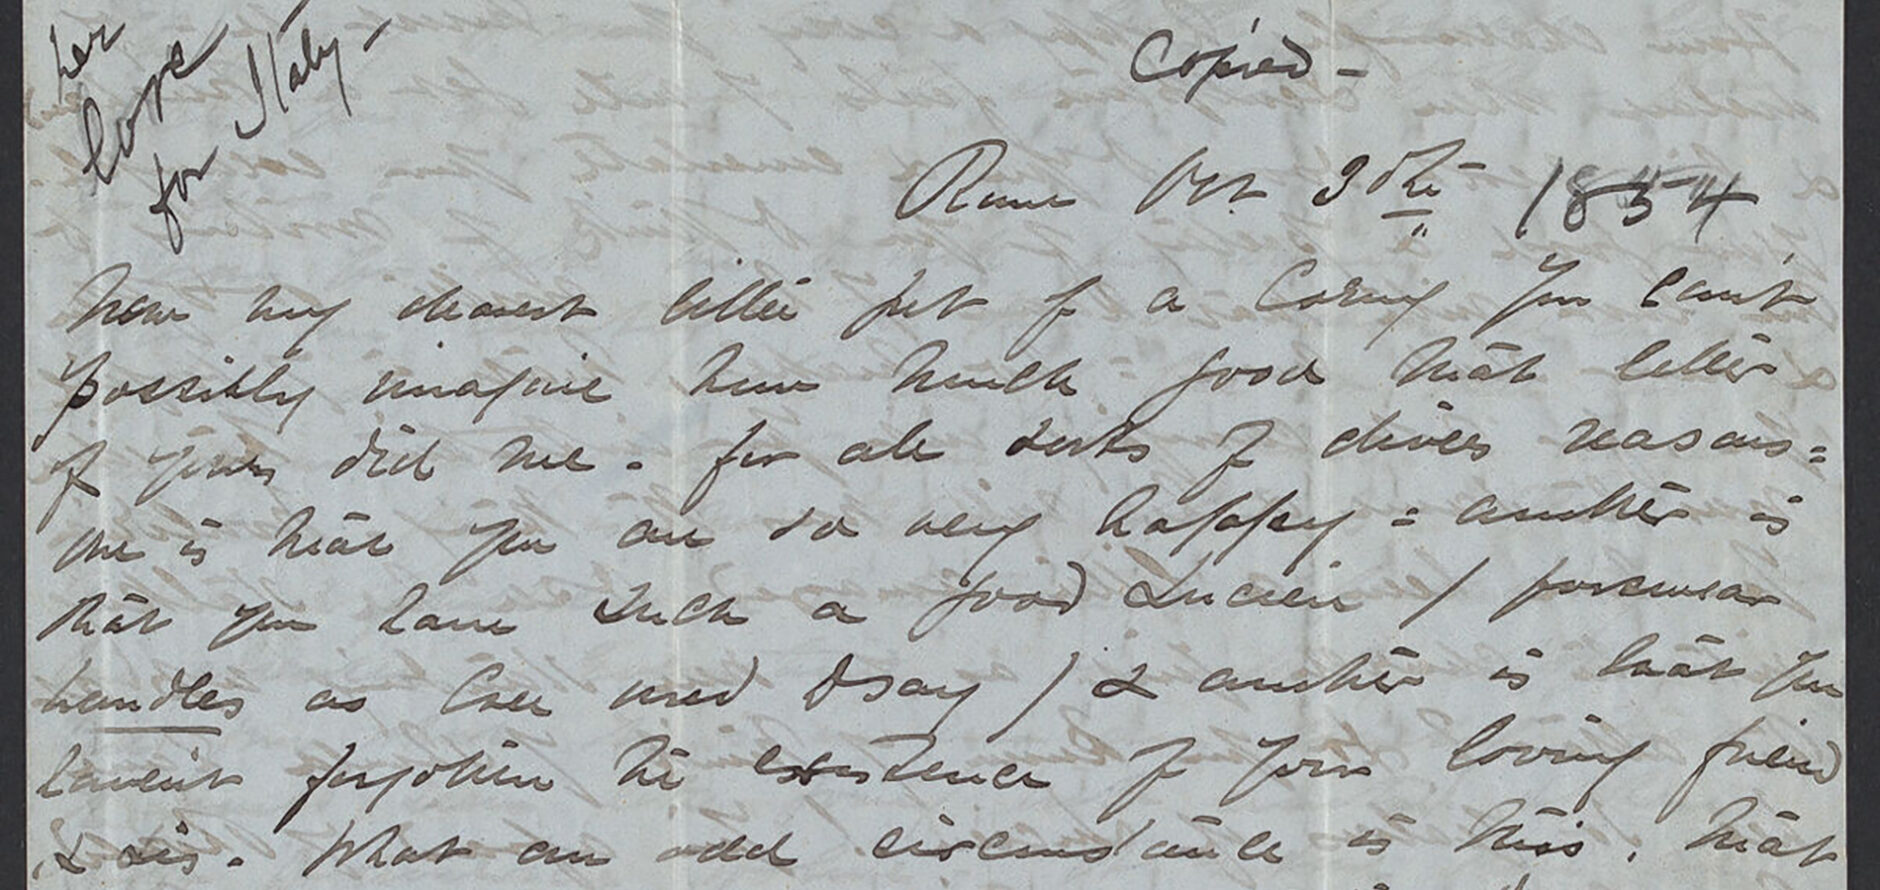 her
love
for Italy -
Copied -
Rome Oct 30th 1854
Now my dearest little pet of a Corny you can't
possibly imagine how much good that letter
of yours did me - for all sorts of divers reasons =
one is that you are so very happy = another is
that you have such a good Lucien / forswear
handles as used to say / & another is that you
haven't forgotten the existence of your loving friend
& sis. What an odd circumstance is this, that